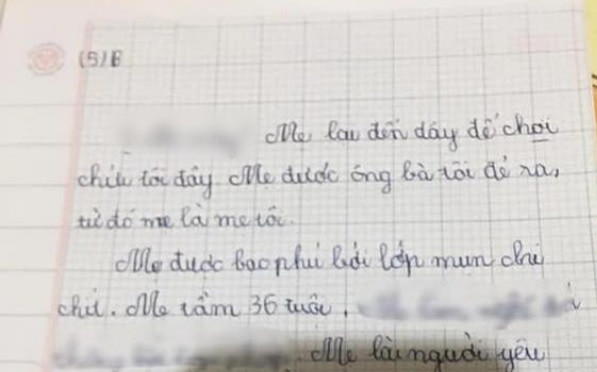 (5)B
Mẹ lại đến đây để chơi
chứ tôi đây Mẹ được ông bà tôi đẻ ra,
từ đó mẹ là mẹ tôi.
Mẹ được bao phủ bởi lớp mụn chi
chít. Mẹ tầm 36 tuổi.
Mẹ là người yêu